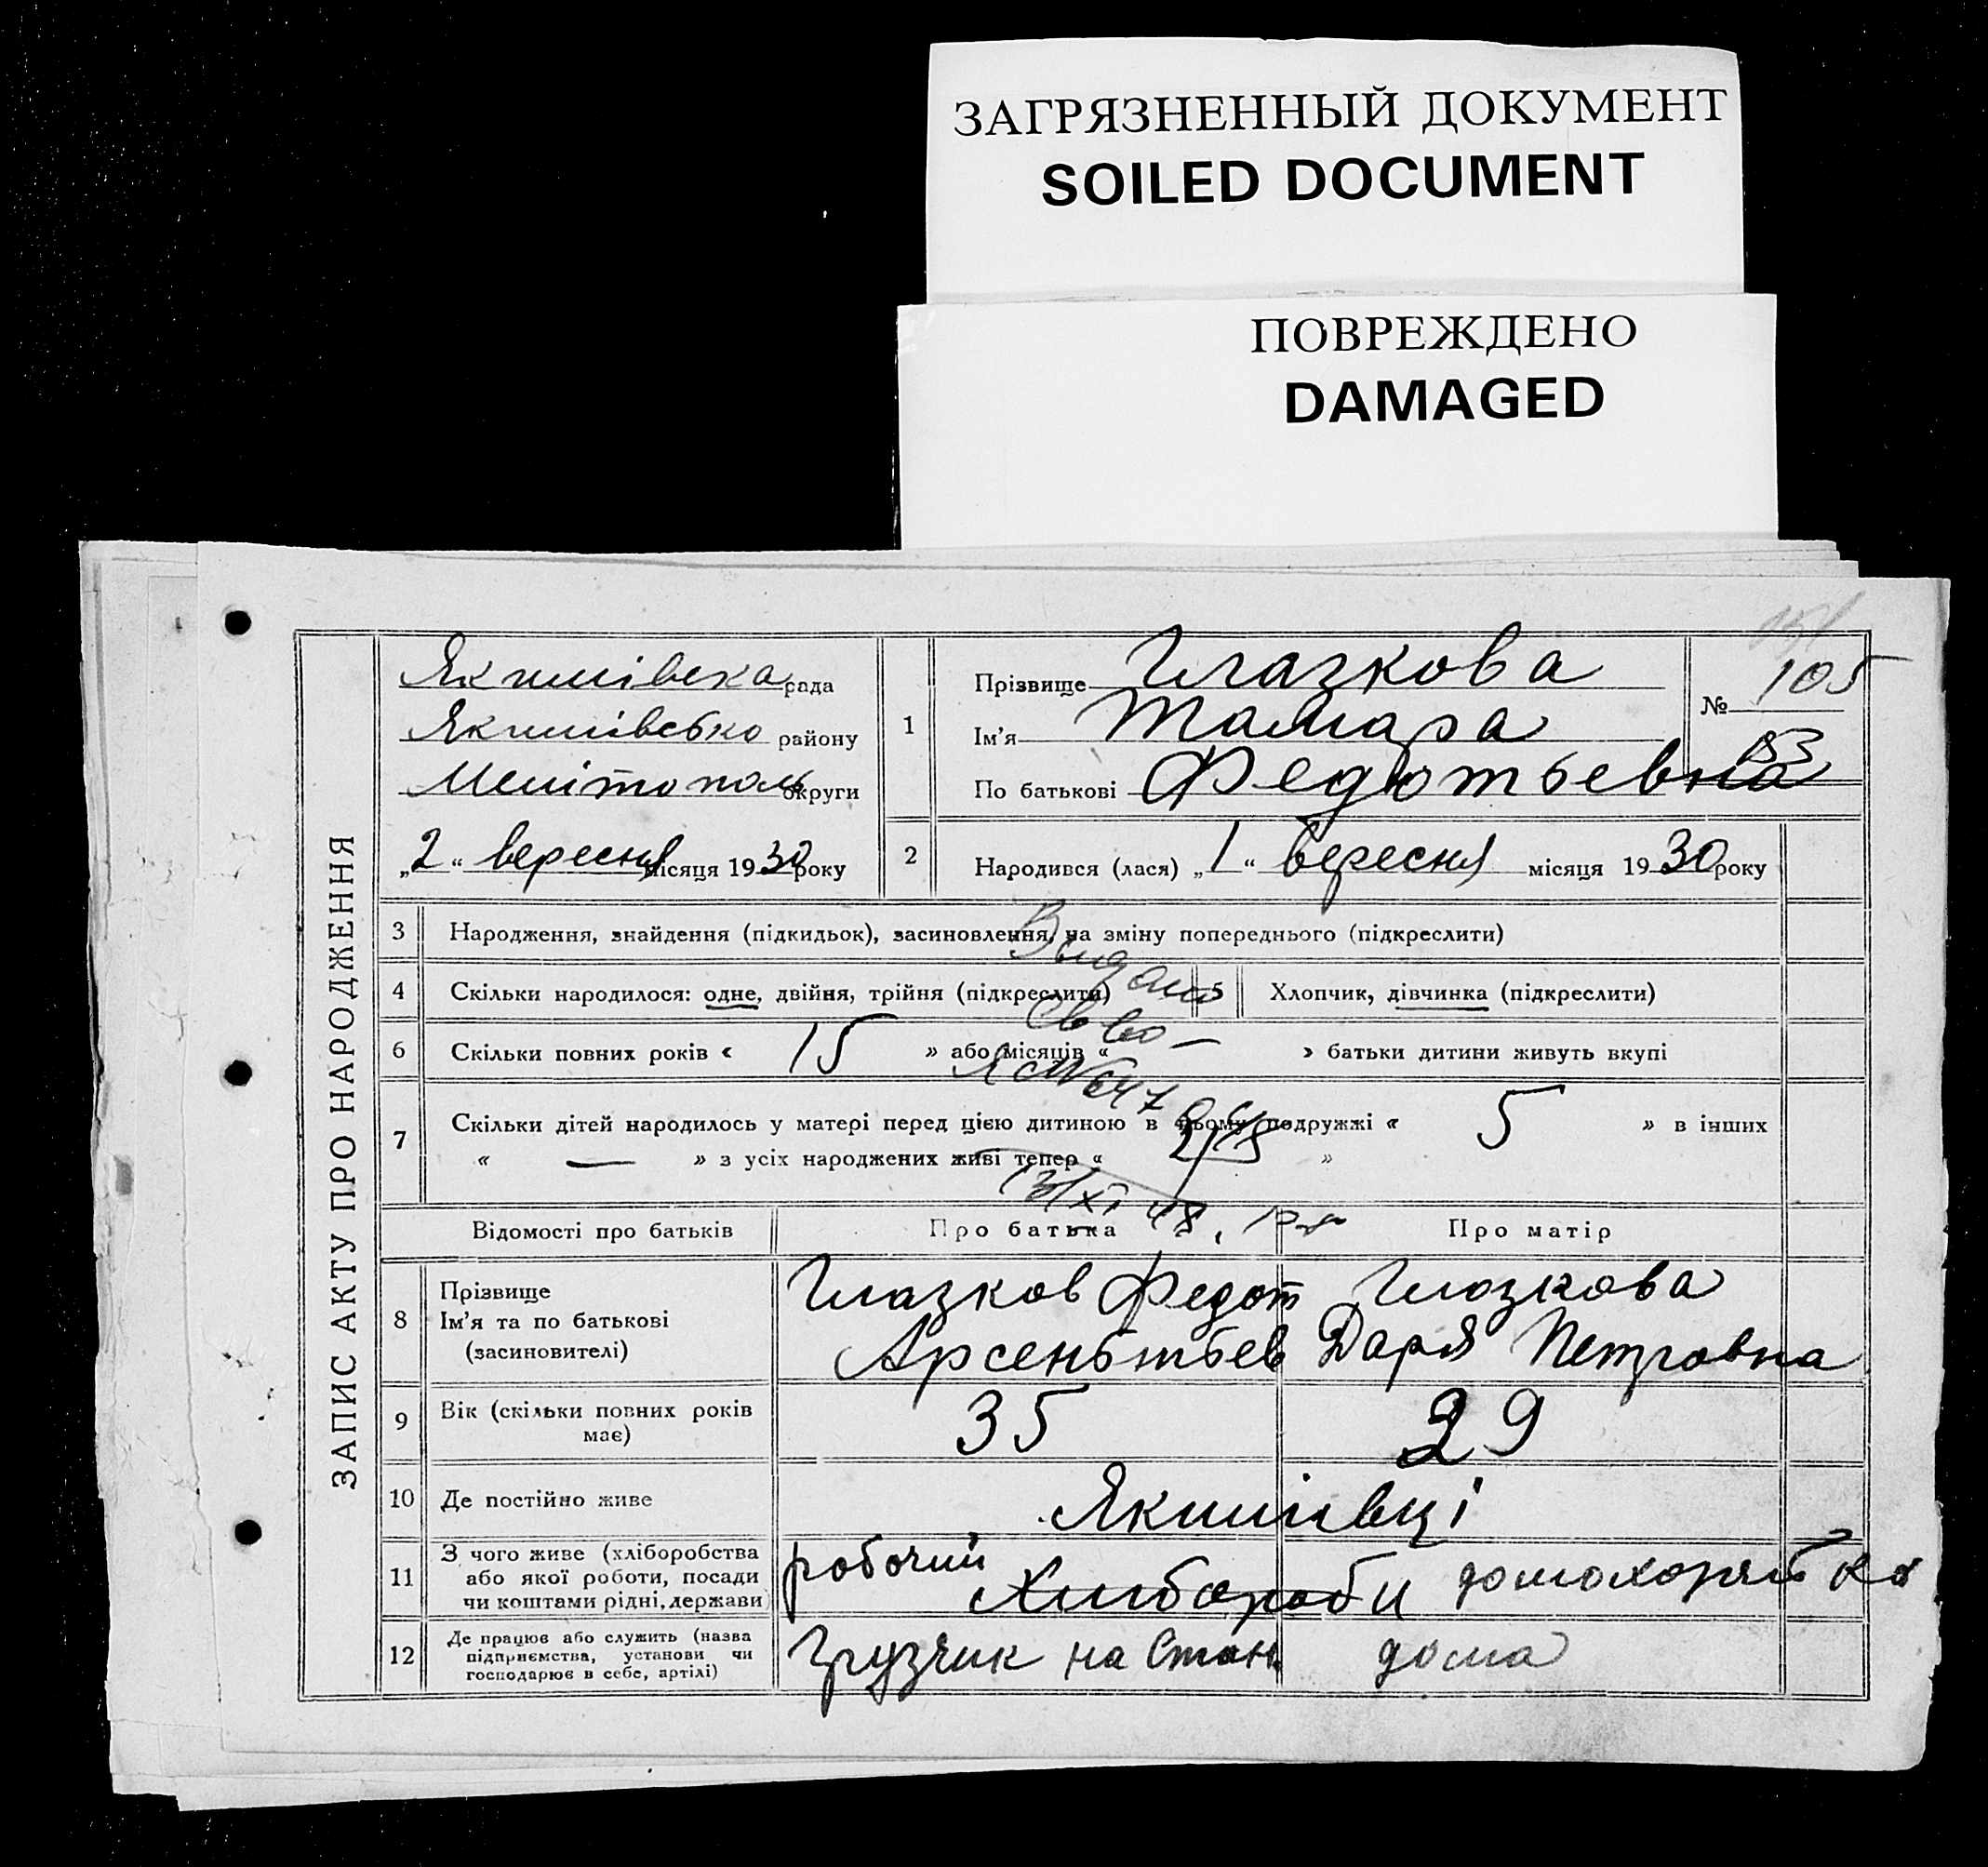 ЗАГРЯЗНЕННЫЙ ДОКУМЕНТ
SOILED DOCUMENT
ПОВРЕЖДЕНО
DAMAGED
ЗАПИС АКТУ ПРО НАРОДЖЕННЯ
Якимівска рада
Якимівсько району
Мелітополь округи
„2“ вересня місяця 1930 року
1
Прізвище Глазкова
Ім'я Тамара
По батькові Федотьевна
№ 105
153
2
Народився (лася) „1“ вересня місяця 1930 року
3 Народження, знайдення (підкидьок), засиновлення, на зміну попереднього (підкреслити)
4 Скільки народилося: одне, двійня, трійня (підкреслити) 5 Хлопчик, дівчинка (підкреслити)
6 Скільки повних років « 15 » або місяців « — » батьки дитини живуть вкупі
7 Скільки дітей народилось у матері перед цією дитиною в цьому подружжі « 5 » в інших
« — » з усіх народжених живі тепер « »
Выдано
Св во
13/XI 48
Відомості про батьків Про батька Про матір
8 Прізвище
Ім'я та по батькові
(засиновителі)
Глазков Федот
Арсеньтьев
Глазкова
Даря Петровна
9 Вік (скільки повних років
має)
35 29
10 Де постійно живе Якимівці
11 З чого живе (хліборобства
або якої роботи, посади
чи коштами рідні, держави)
робочий Хлибороби домохозяйка
12 Де працює або служить (назва
підприємства, установи чи
господарює в себе, артілі)
Грузчик на Стан. дома